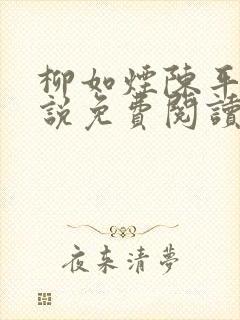 柳如煙陳平
説免費閱讀
夜来清夢